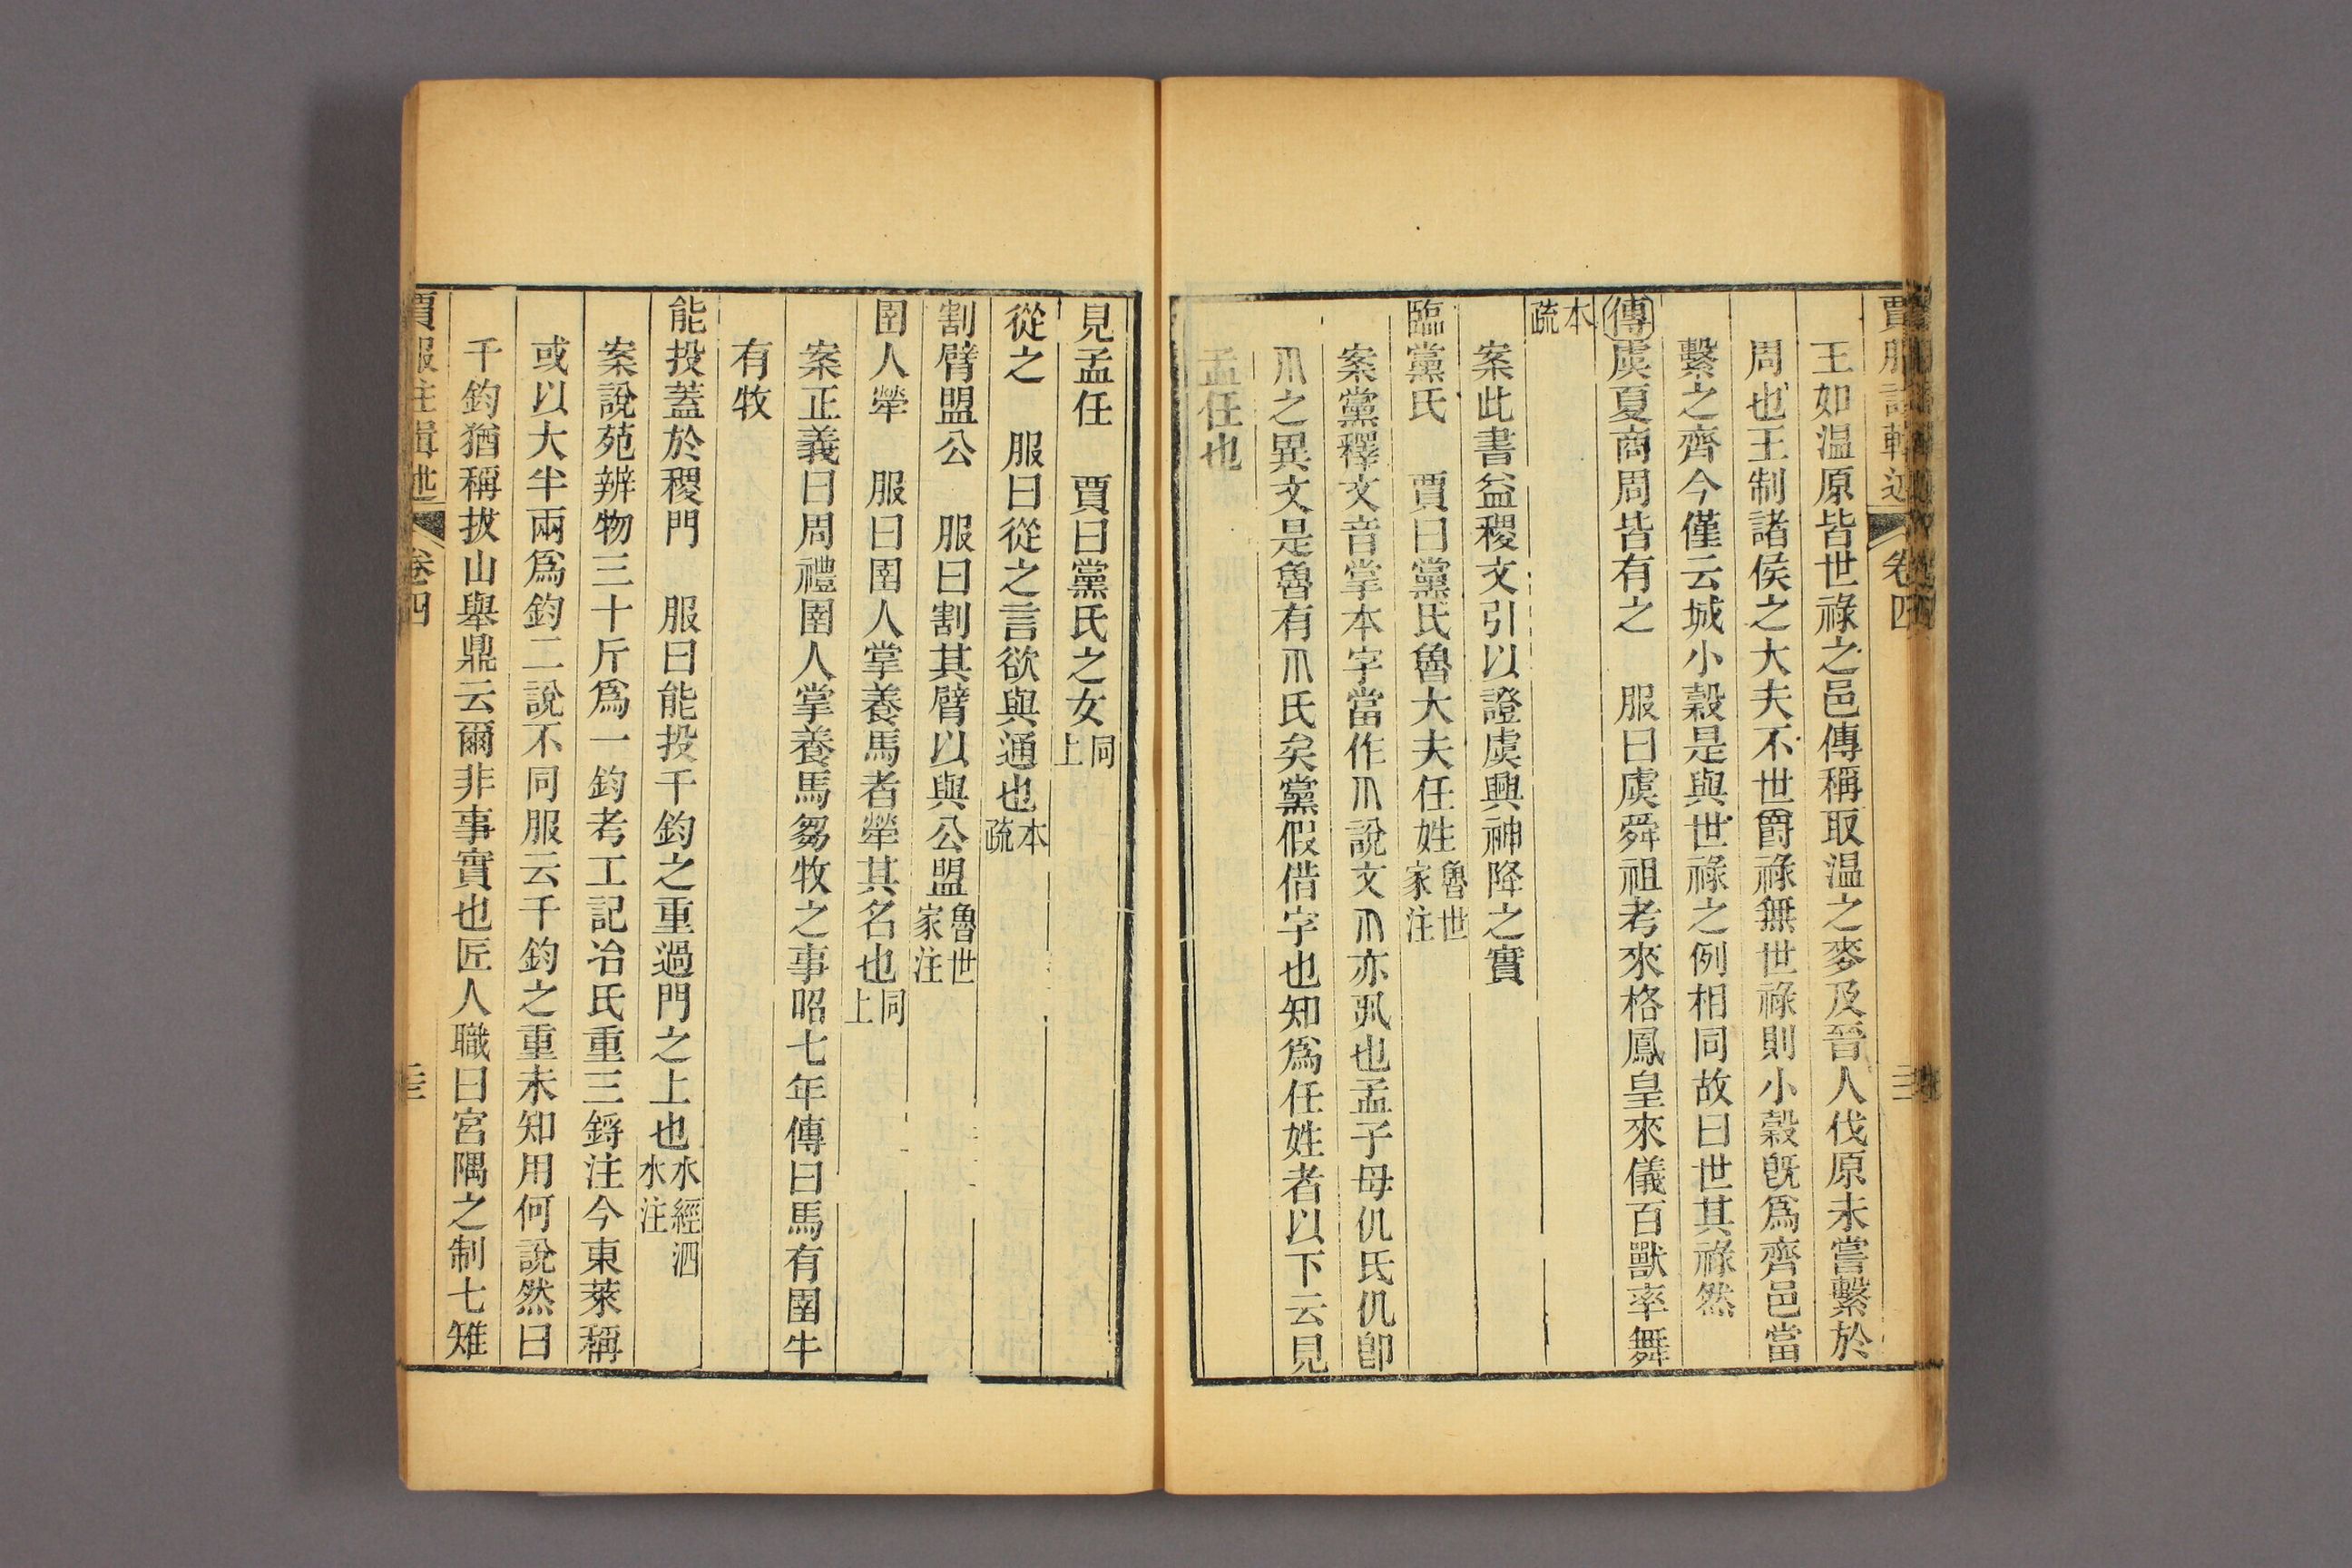 賈服註輯述 卷四
王如温原皆世祿之邑傳稱取温之麥及晉人伐原未嘗繫於
周也王制諸侯之大夫不世爵祿無世祿則小穀旣爲齊邑當
繫之齊今僅云城小穀是與世祿之例相同故曰世其祿然
傳虞夏商周皆有之　服曰虞舜祖考來格鳳皇來儀百獸率舞
本疏
案此書益稷文引以證虞興神降之實
臨黨氏　賈曰黨氏魯大夫任姓魯世家注
案黨釋文音掌本字當作𠃨說文𠃨亦丮也孟子母仉氏仉卽
𠃨之異文是魯有𠃨氏矣黨假借字也知爲任姓者以下云見
孟任也
見孟任　賈曰黨氏之女同上
從之　服曰從之言欲與通也本疏
割臂盟公　服曰割其臂以與公盟魯世家注
圉人犖　服曰圉人掌養馬者犖其名也同上
案正義曰周禮圉人掌養馬芻牧之事昭七年傳曰馬有圉牛
有牧
能投蓋於稷門　服曰能投千鈞之重過門之上也水經泗水注
案說苑辨物三十斤爲一鈞考工記冶氏重三鋝注今東萊稱
或以大半兩爲鈞二說不同服云千鈞之重未知用何說然曰
千鈞猶稱拔山舉鼎云爾非事實也匠人職曰宮隅之制七雉
賈服注輯述 卷四